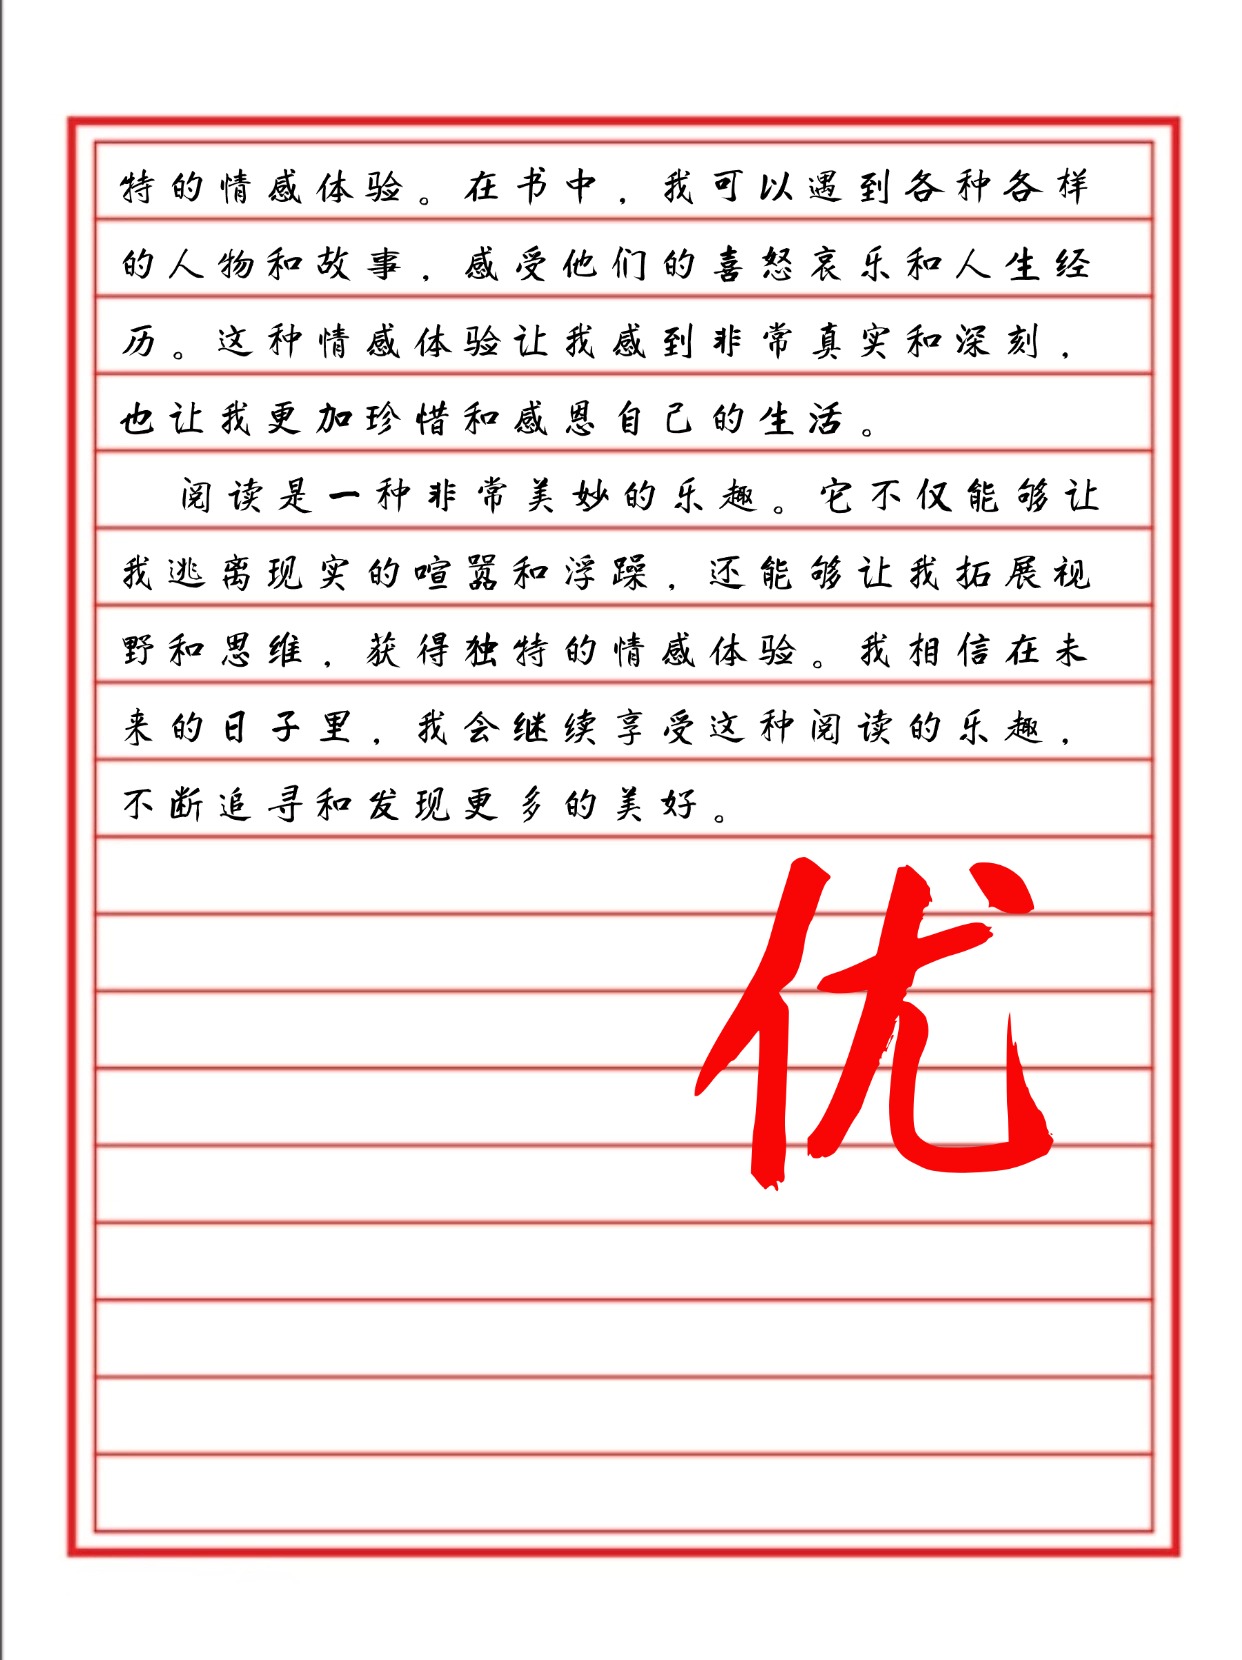 特的情感体验。在书中，我可以遇到各种各样
的人物和故事，感受他们的喜怒哀乐和人生经
历。这种情感体验让我感到非常真实和深刻，
也让我更加珍惜和感恩自己的生活。
阅读是一种非常美妙的乐趣。它不仅能够让
我逃离现实的喧嚣和浮躁，还能够让我拓展视
野和思维，获得独特的情感体验。我相信在未
来的日子里，我会继续享受这种阅读的乐趣，
不断追寻和发现更多的美好。
优